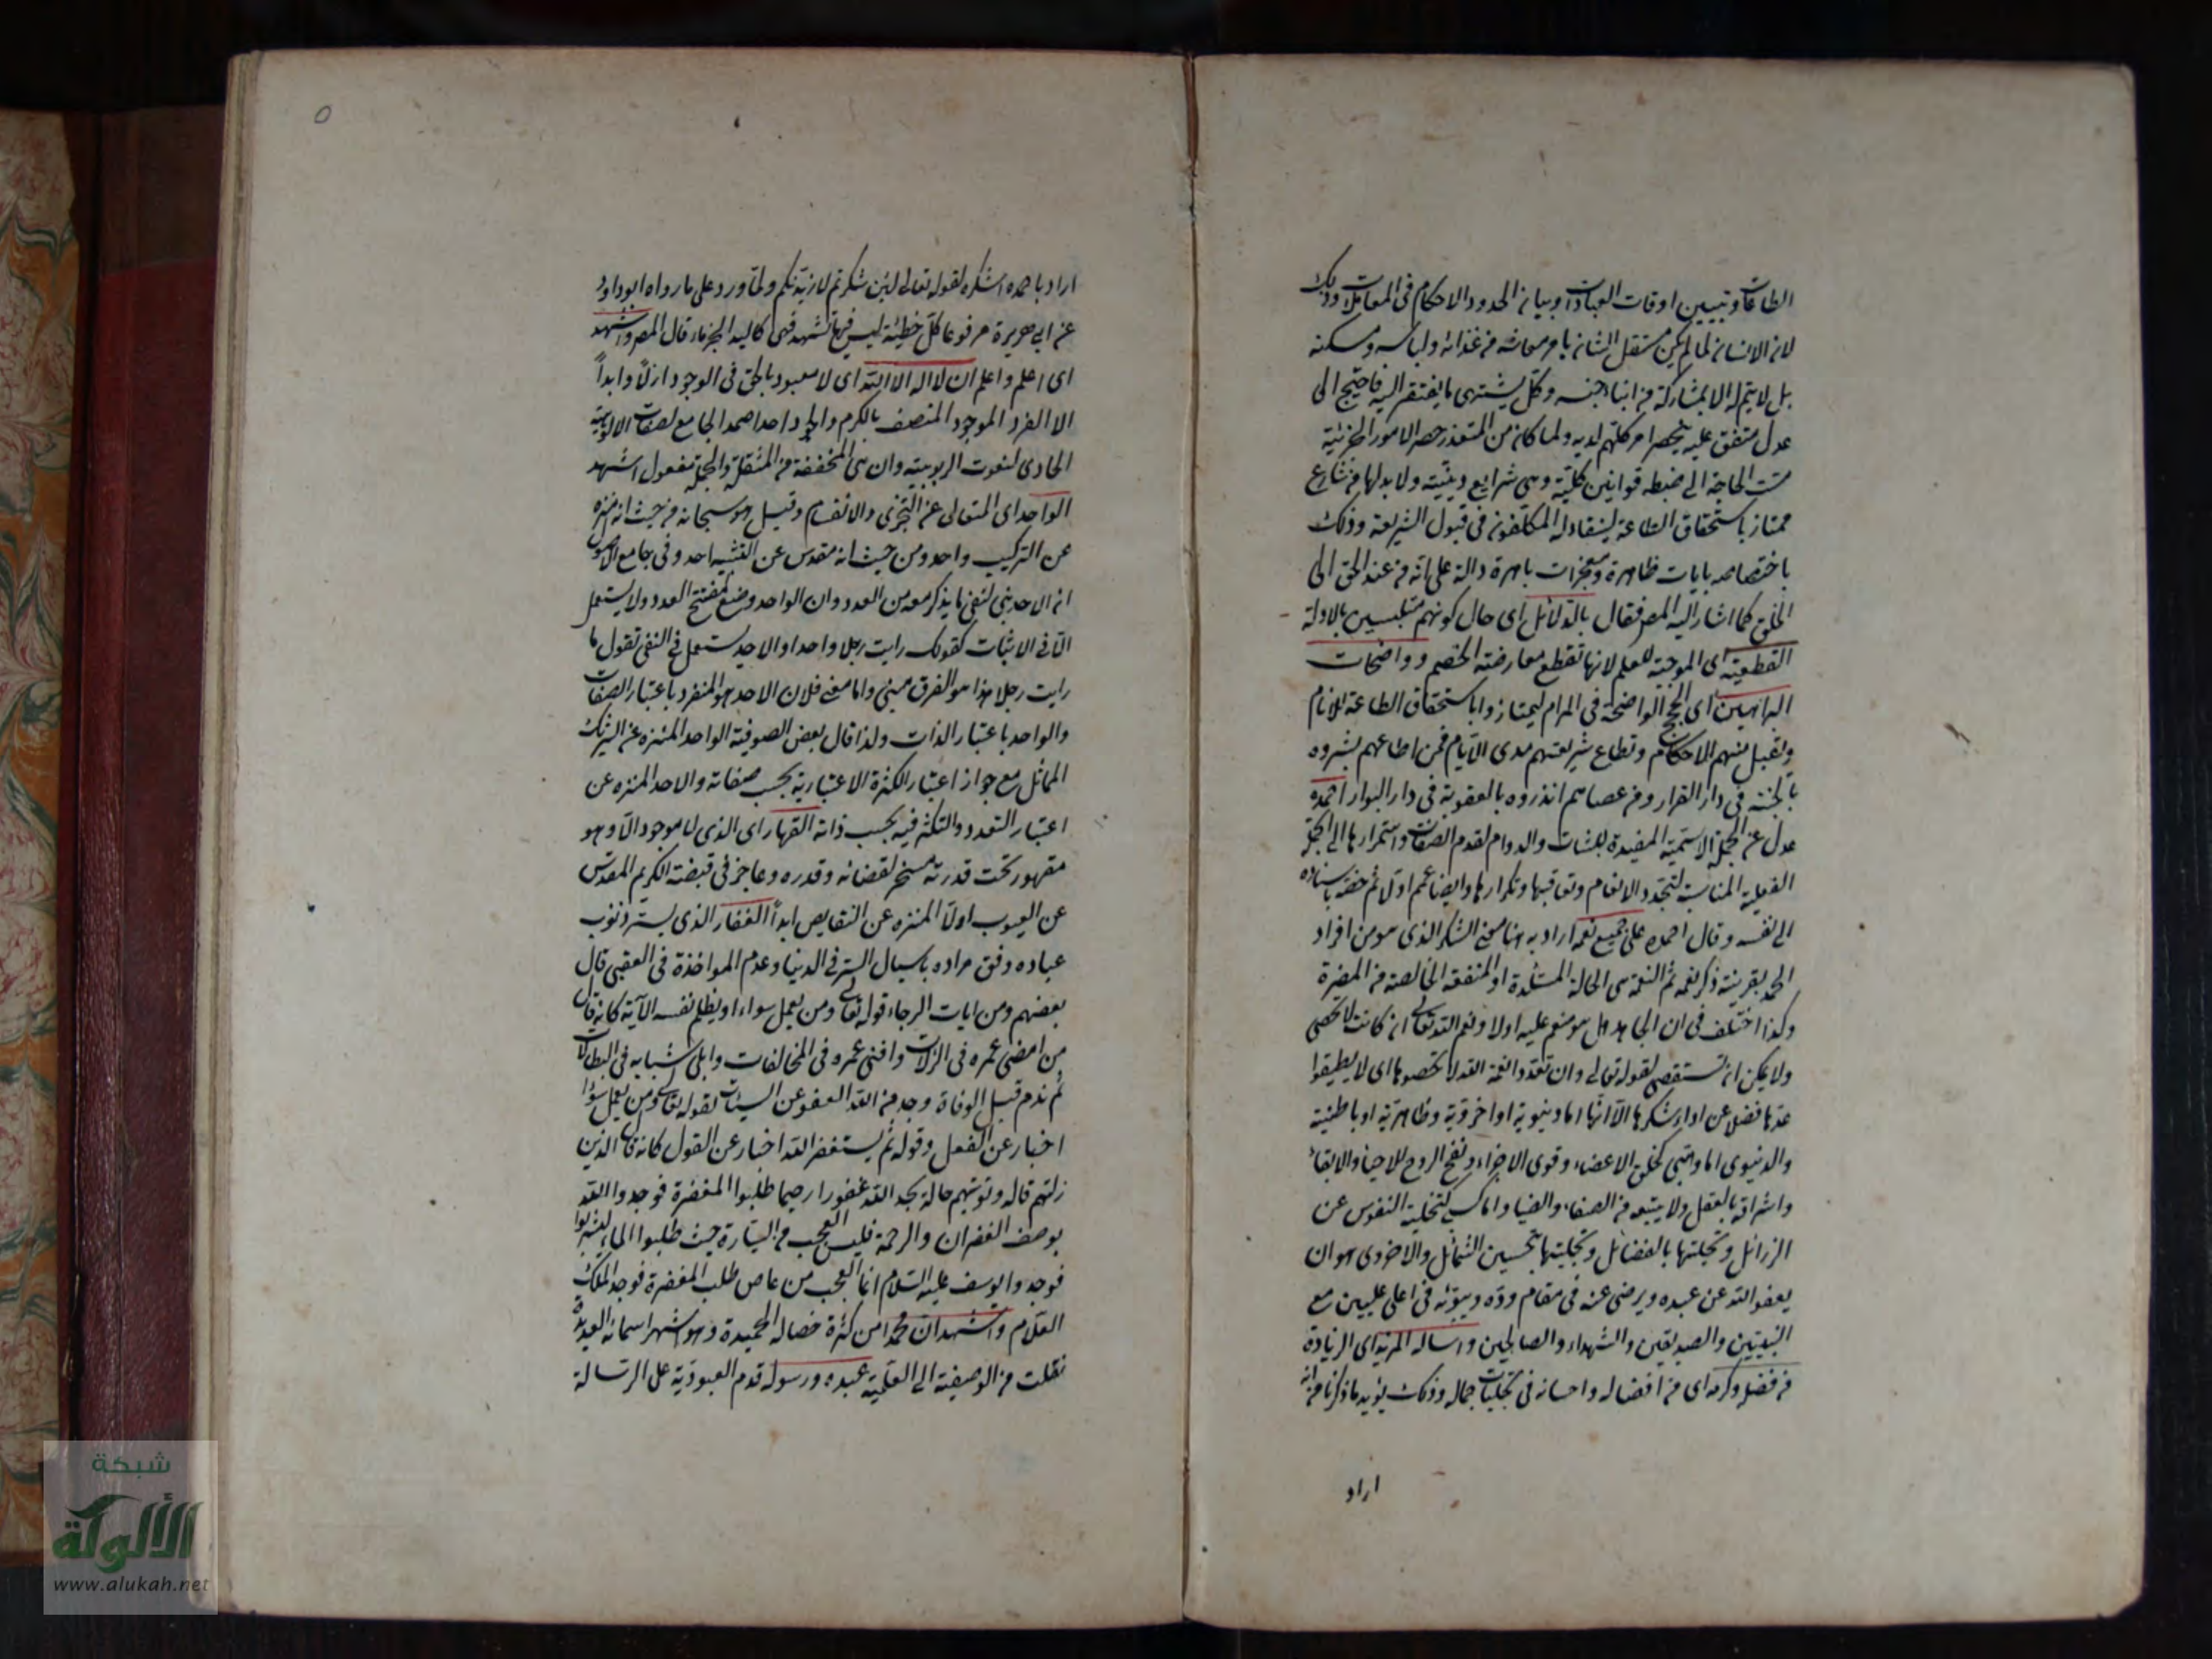 الطاعات وتبيين اوقات العبادات وبيان الحدود والاحكام فى المعاملات وذلك
لان الانسان لما لم يكن مستقل الشان بامر معاشه من غذائه ولباسه ومسكنه
بل لا يتم له الا بمشاركة من ابناء جنسه وكل يشتهى ما يفتقر اليه فاحتيج الى
عدل متفق عليه ينحصر امر كلهم لديه ولما كان من المتعذر حصر الامور الجزئية
مست الحاجة الى ضبطه قوانين كلية وهى شرايع دينية ولا بد لها من شارع
ممتاز باستحقاق الطاعة لينقاد له المكلفون فى قبول الشريعة وذلك
باختصاصه بايات ظاهرة ومعجزات باهرة دالة على انه من عند الحق الى
الخلق كما اشار اليه المصر فقال بالدلائل اى حال كونهم متلبسين بالادلة
القطعية اى الموجبة للعلم لانها تقطع معارضة الخصم وواضحات
البراهين اى الحجج الواضحة فى المرام ليمتازوا باستحقاق الطاعة للانام
وتقبل منهم الاحكام وتطاع شريعتهم مدى الايام فمن اطاعهم بشروه
بالجنة فى دار القرار ومن عصاهم انذروه بالعقوبة فى دار البوار احمده
عدل عن الجملة الاسمية المفيدة للثبات والدوام لقدم الصفات واستمرارها الى الجملة
الفعلية المناسبة لتجدد الانعام وتعاقبها وتكرارها وايضا عمم اولا ثم خصه باسناده
الى نفسه وقال احمده على جميع نعمه اراد به هنا معنى الشكر الذى هو من افراد
الحمد بقرينة ذكر نعمه ثم النعمة هى الحالة المستلذة او المنفعة الخالصة من المضرة
وكذا اختلف فى ان الجاحد هل هو منعم عليه اولا ونعم الله تعالى ان كانت لا تحصى
ولا يمكن ان تستقصى لقوله تعالى وان تعدوا نعمة الله لا تحصوها اى لا يطيقوا
عدها فضلا عن اداء شكرها الا انها اما دنيوية او اخروية وظاهرية او باطنية
والدنيوى اما وهبى كخلق الاعضاء وقوى الاجزاء ونفخ الروح للاحياء والابقاء
واشراقه بالعقل ولا يتبعه من الصفاء والضياء واما كسبى كتخلية النفوس عن
الرذائل وتحليتها بالفضائل وتجليتها بتحسين الشمائل والاخروى هو ان
يعفو الله عن عبده ويرضى عنه فى مقام وده ويبوئه فى اعلى عليين مع
النبيين والصديقين والشهداء والصالحين واساله المزيد اى الزيادة
من فضله وكرمه اى من افضاله واحسانه فى تجليات جماله وذلك يؤيد ما ذكرنا من انه
اراد
٥
اراد باحمده اشكره لقوله تعالى لئن شكرتم لازيدنكم ولما ورد على ما رواه ابو داود
عن ابى هريرة مرفوعا كل خطبة ليس فيها تشهد فهى كاليد الجزماء قال المصر واشهد
اى اعلم واعلم ان لا اله الا الله اى لا معبود بالحق فى الوجود ازلا وابداً
الا الفرد الموجود المتصف بالكرم والجود احدا صمدا لجامع لصفات الالوهية
الحاوى لنعوت الربوبية وان هى المخففة من المثقلة والجملة مفعول اشهد
الواحد اى المتعالى عن التجزى والانقسام وقيل هو سبحانه من حيث انه منزه
عن التركيب واحد ومن حيث انه مقدس عن التشبيه احد وفى جامع الاصول
ان الاحد بنى لنفى ما يذكر معه من العدد وان الواحد وضع لمفتتح العدد ولا يستعمل
الا فى الاثبات كقولك رايت رجلا واحدا والاحد يستعمل فى النفى تقول ما
رايت رجلا هذا هو الفرق مبنى واما معنى فلان الاحد هو المنفرد باعتبار الصفات
والواحد باعتبار الذات ولذا قال بعض الصوفية الواحد المنزه عن الشريك
المماثل مع جواز اعتبار الكثرة الاعتبارية بحسب صفاته والاحد المنزه عن
اعتبار التعدد والتكثر فيه بحسب ذاته القهار اى الذى لا موجود الا وهو
مقهور تحت قدرته مسخر لقضائه وقدره وعاجز فى قبضته الكريم المقدس
عن العيوب اولا المنزه عن النقايص ابداً الغفار الذى يستر ذنوب
عباده وفق مراده باسبال الستر فى الدنيا وعدم المواخذة فى العقبى قال
بعضهم ومن ايات الرجاء قوله تعالى ومن يعمل سوءا او يظلم نفسه الآية كانه قال
من امضى عمره فى الزلات وافنى عمره فى المخالفات وابلى شبابه فى البطالات
ثم ندم قبل الوفاة وجد من الله العفو عن السيئات لقوله تعالى ومن يعمل سوءا
اخبار عن الفعل وقوله ثم يستغفر الله اخبار عن القول كانه قال الذين
زلتهم قاله وتوبتهم حالة يجد الله غفورا رحيما طلبوا المغفرة فوجدوا الله
بوصف الغفران والرحمة فليس العجب من السيارة حيث طلبوا الماء ليشربوا
فوجدوا يوسف عليه السلام انما العجب من عاص طلب المغفرة فوجد الملك
العلام واشهد ان محمدا من كثرة خصاله الحميدة وهو اشهر اسمائه العديدة
نقلت من الوصفية الى العلمية عبده ورسوله قدم العبودية على الرسالة
شبكة
الألوكة
www.alukah.net